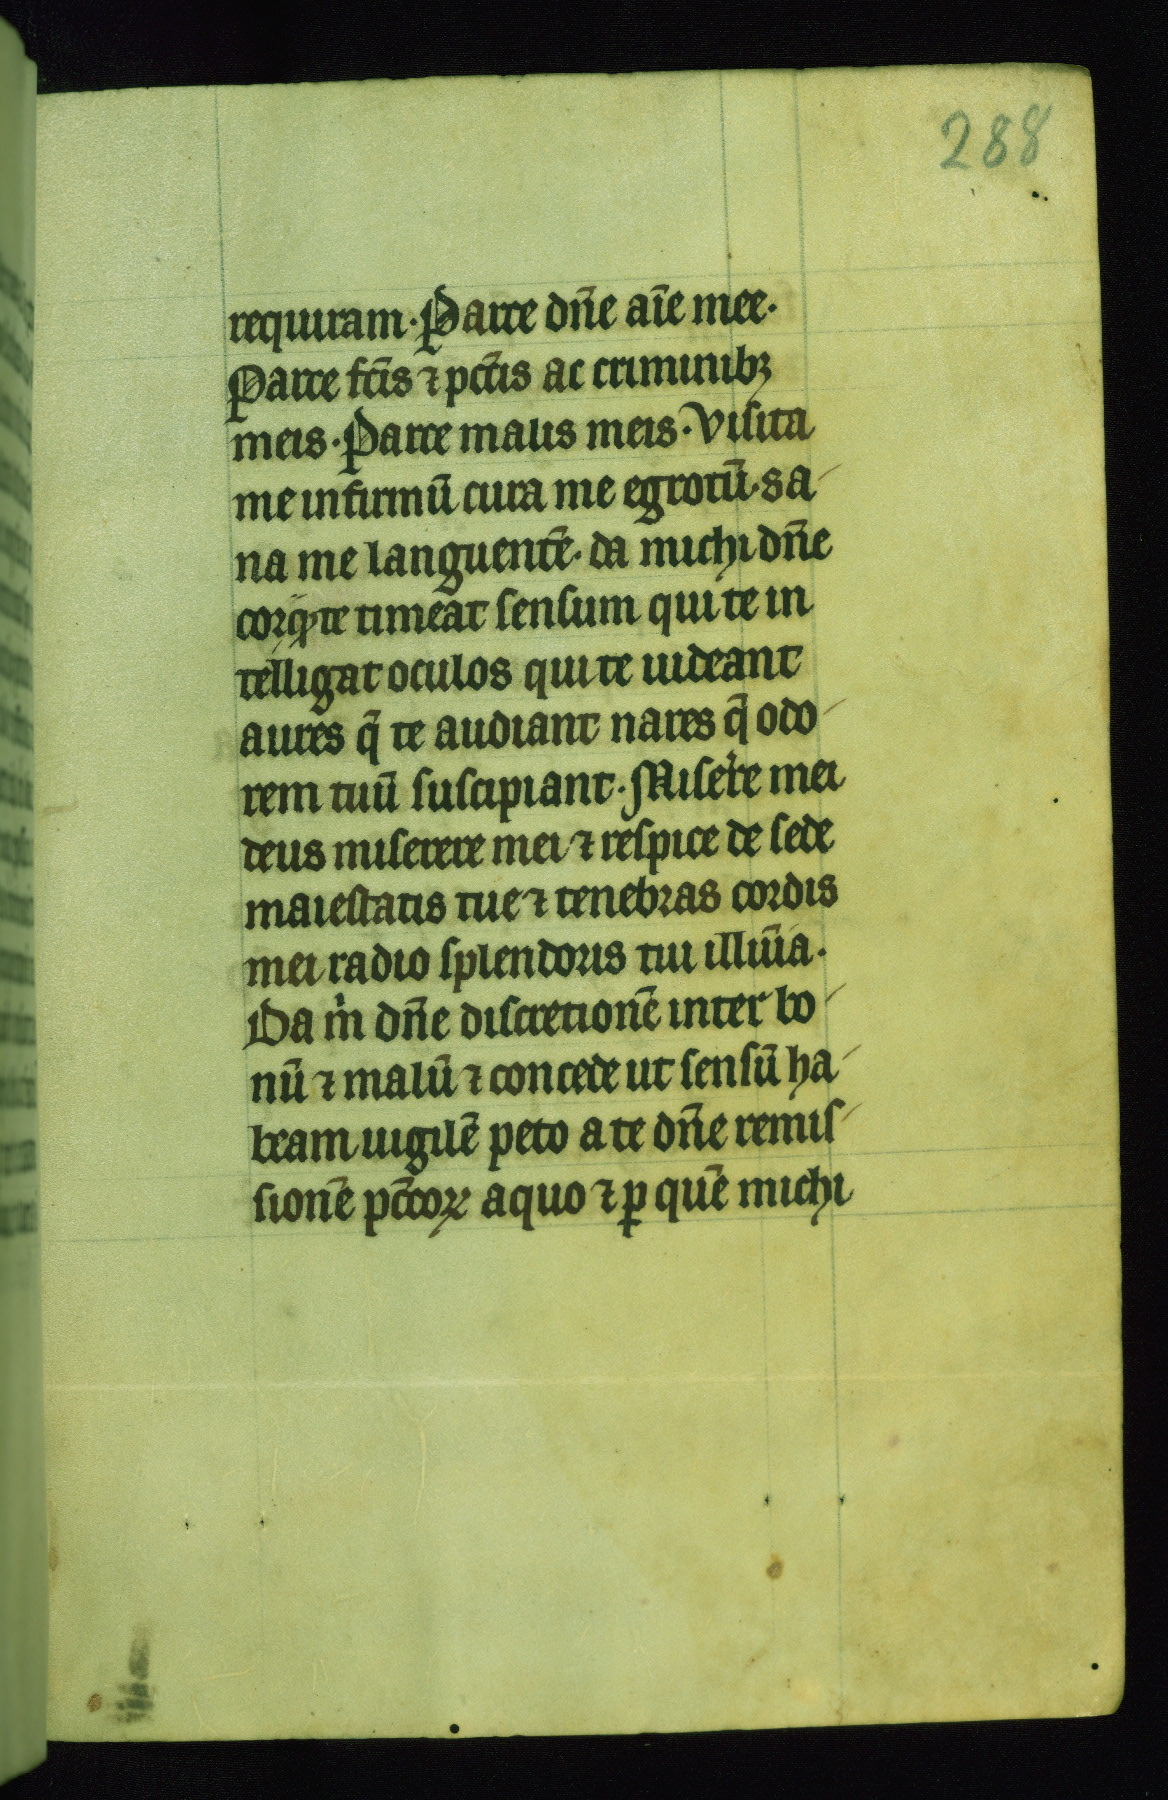 288
requiram · Parce dn̄e aīe mee ·
Parce fc̄is ⁊ pcc̄is ac criminibꝫ
meis · Parce malis meis · Visita
me infirmū cura me egrotū · sa-
na me languentē · da michi dn̄e
cor q̇ te timeat sensum qui te in
telligat oculos qui te uideant
aures q̄ te audiant nares q̄ odo-
rem tuū suscipiant · Miser̄e mei
deus miserere mei ⁊ respice de sede
maiestatis tue ⁊ tenebras cordis
mei radio splendoris tui illiūia ·
Da m̄ dn̄e discretionē inter bo-
nū ⁊ malū ⁊ concede ut sensū ha-
beam uigilē peto a te dn̄e remis-
sionē pcc̄oꝝ a quo ⁊ ꝑ quē michi